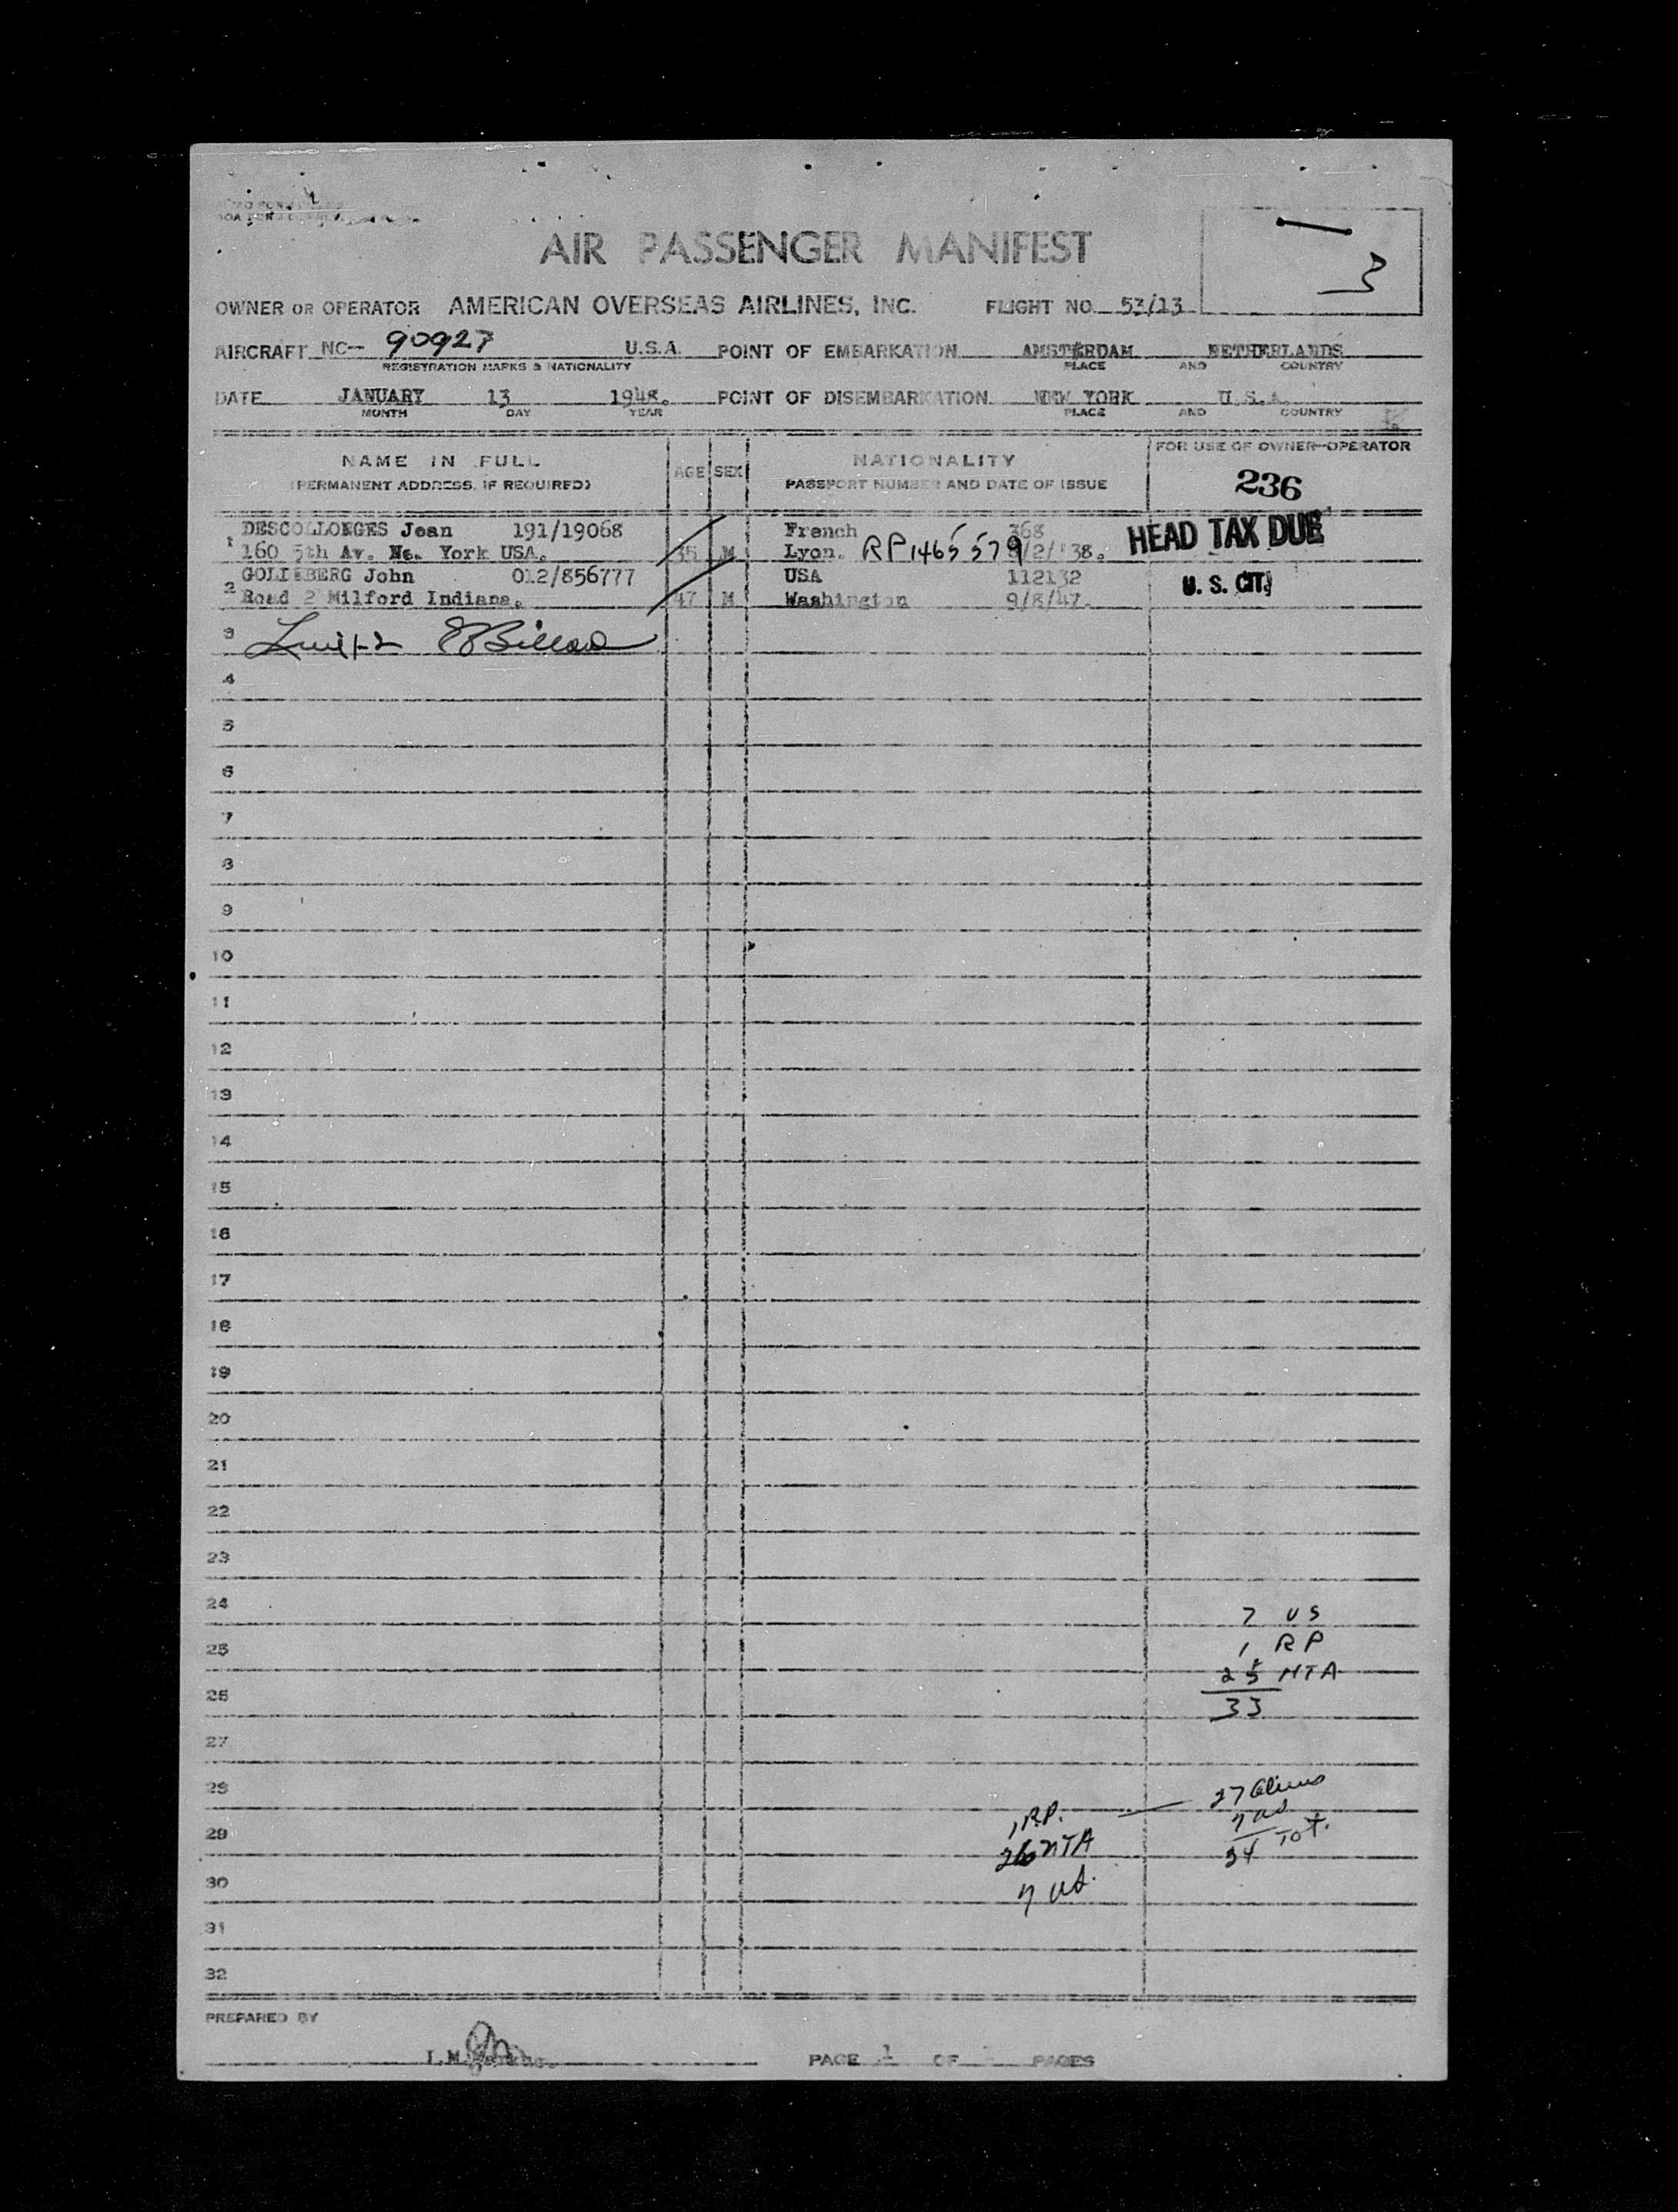 3
AIR PASSENGER MANIFEST
OWNER OR OPERATOR AMERICAN OVERSEAS AIRLINES, INC. FLIGHT NO. 53/13
AIRCRAFT NC-- 90927 U.S.A. POINT OF EMBARKATION AMSTERDAM NETHERLANDS
REGISTRATION MARKS & NATIONALITY PLACE AND COUNTRY
DATE JANUARY 13 1948. POINT OF DISEMBARKATION NEW YORK U.S.A.
MONTH DAY YEAR PLACE AND COUNTRY
NAME IN FULL AGE SEX NATIONALITY FOR USE OF OWNER--OPERATOR
(PERMANENT ADDRESS, IF REQUIRED) PASSPORT NUMBER AND DATE OF ISSUE 236
1 DESCOLLONGES Jean 191/19068 French 368 HEAD TAX DUE
160 5th Av. Ne. York USA. 35 M Lyon. RP 1465579 /2/'38.
2 GOLDEBERG John 012/856777 USA 112132 U. S. CIT.
Road 2 Milford Indiana. 47 M Washington 9/8/47.
3
4
5
6
7
8
9
10
11
12
13
14
15
16
17
18
19
20
21
22
23
24 7 US
25 1 RP
25 NTA
26 33
27
28 27 Aliens
1 R.P. 7 US
29 26 NTA 34 Tot.
30 7 US.
31
32
PREPARED BY
I.M. PAGE 1 OF PAGES